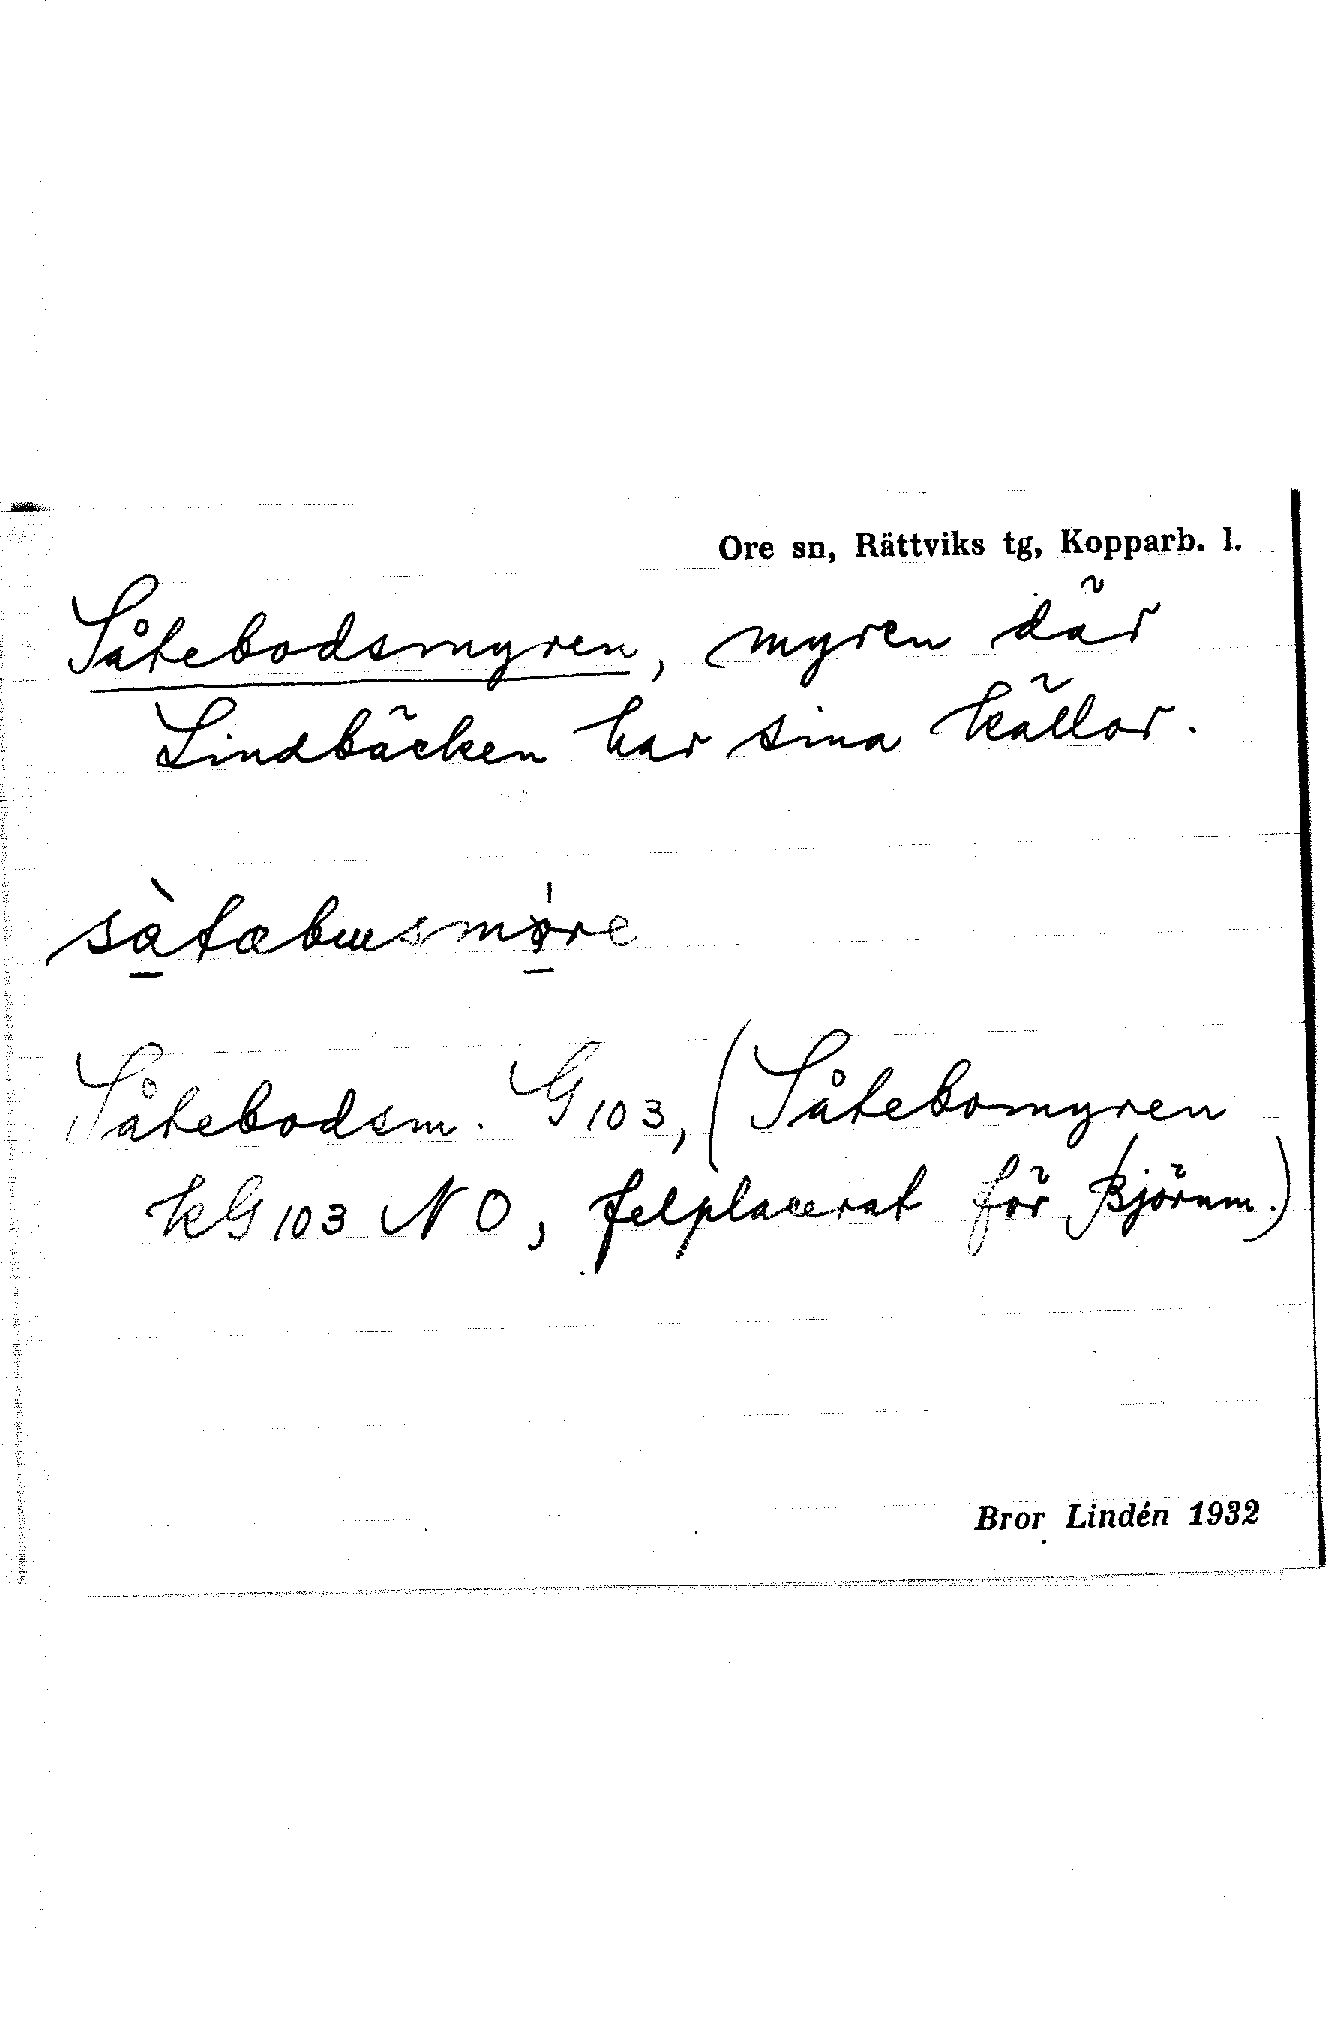 Ore sn, Rättviks tg, Kopparb. l.
Såtebodsmyren, myren där
Lindbäcken har sina källor.
sàtæbusmøre
Såtebodsm. G 103, (Såtebomyren
kG 103 NO, felplacerat för Björnm.)
Bror Lindén 1932